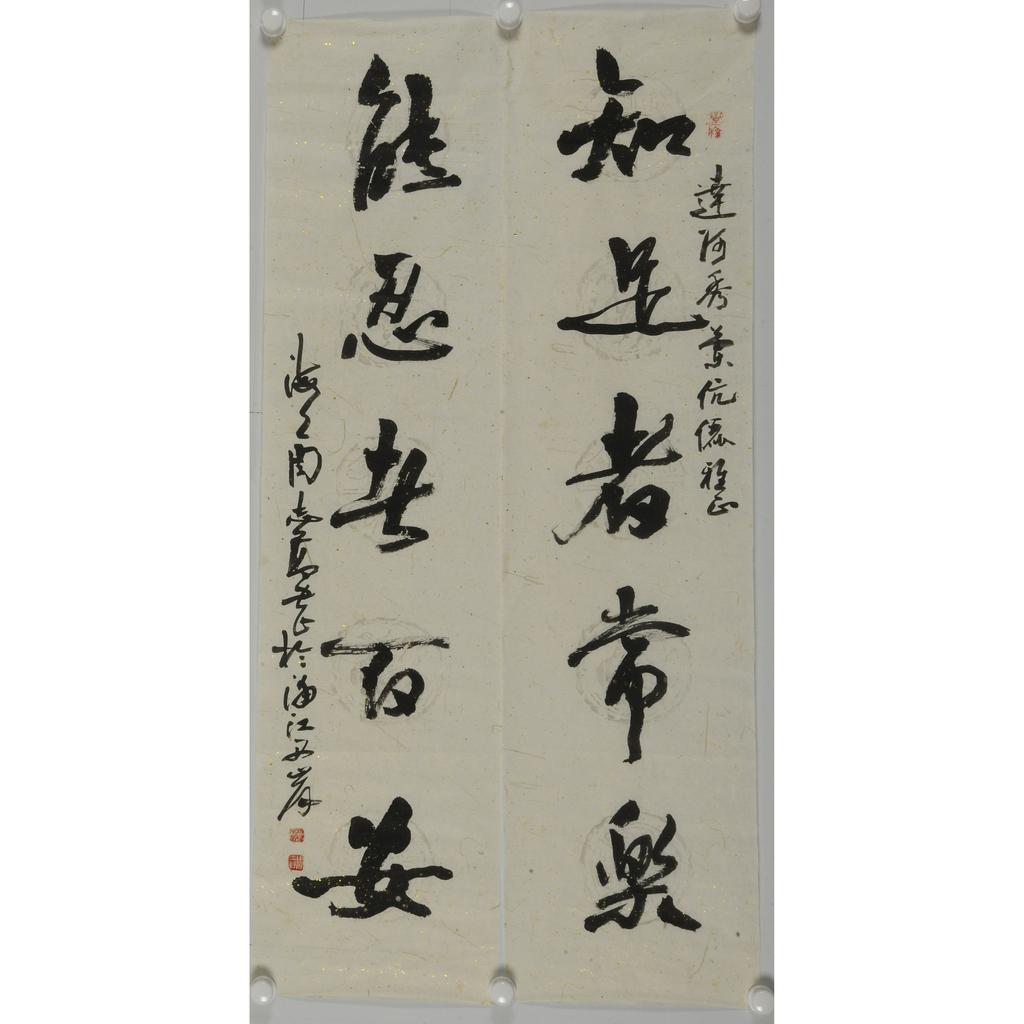 達河秀蘭伉儷雅正
知足者常樂
能忍者自安
海上周志高書於浦江西岸